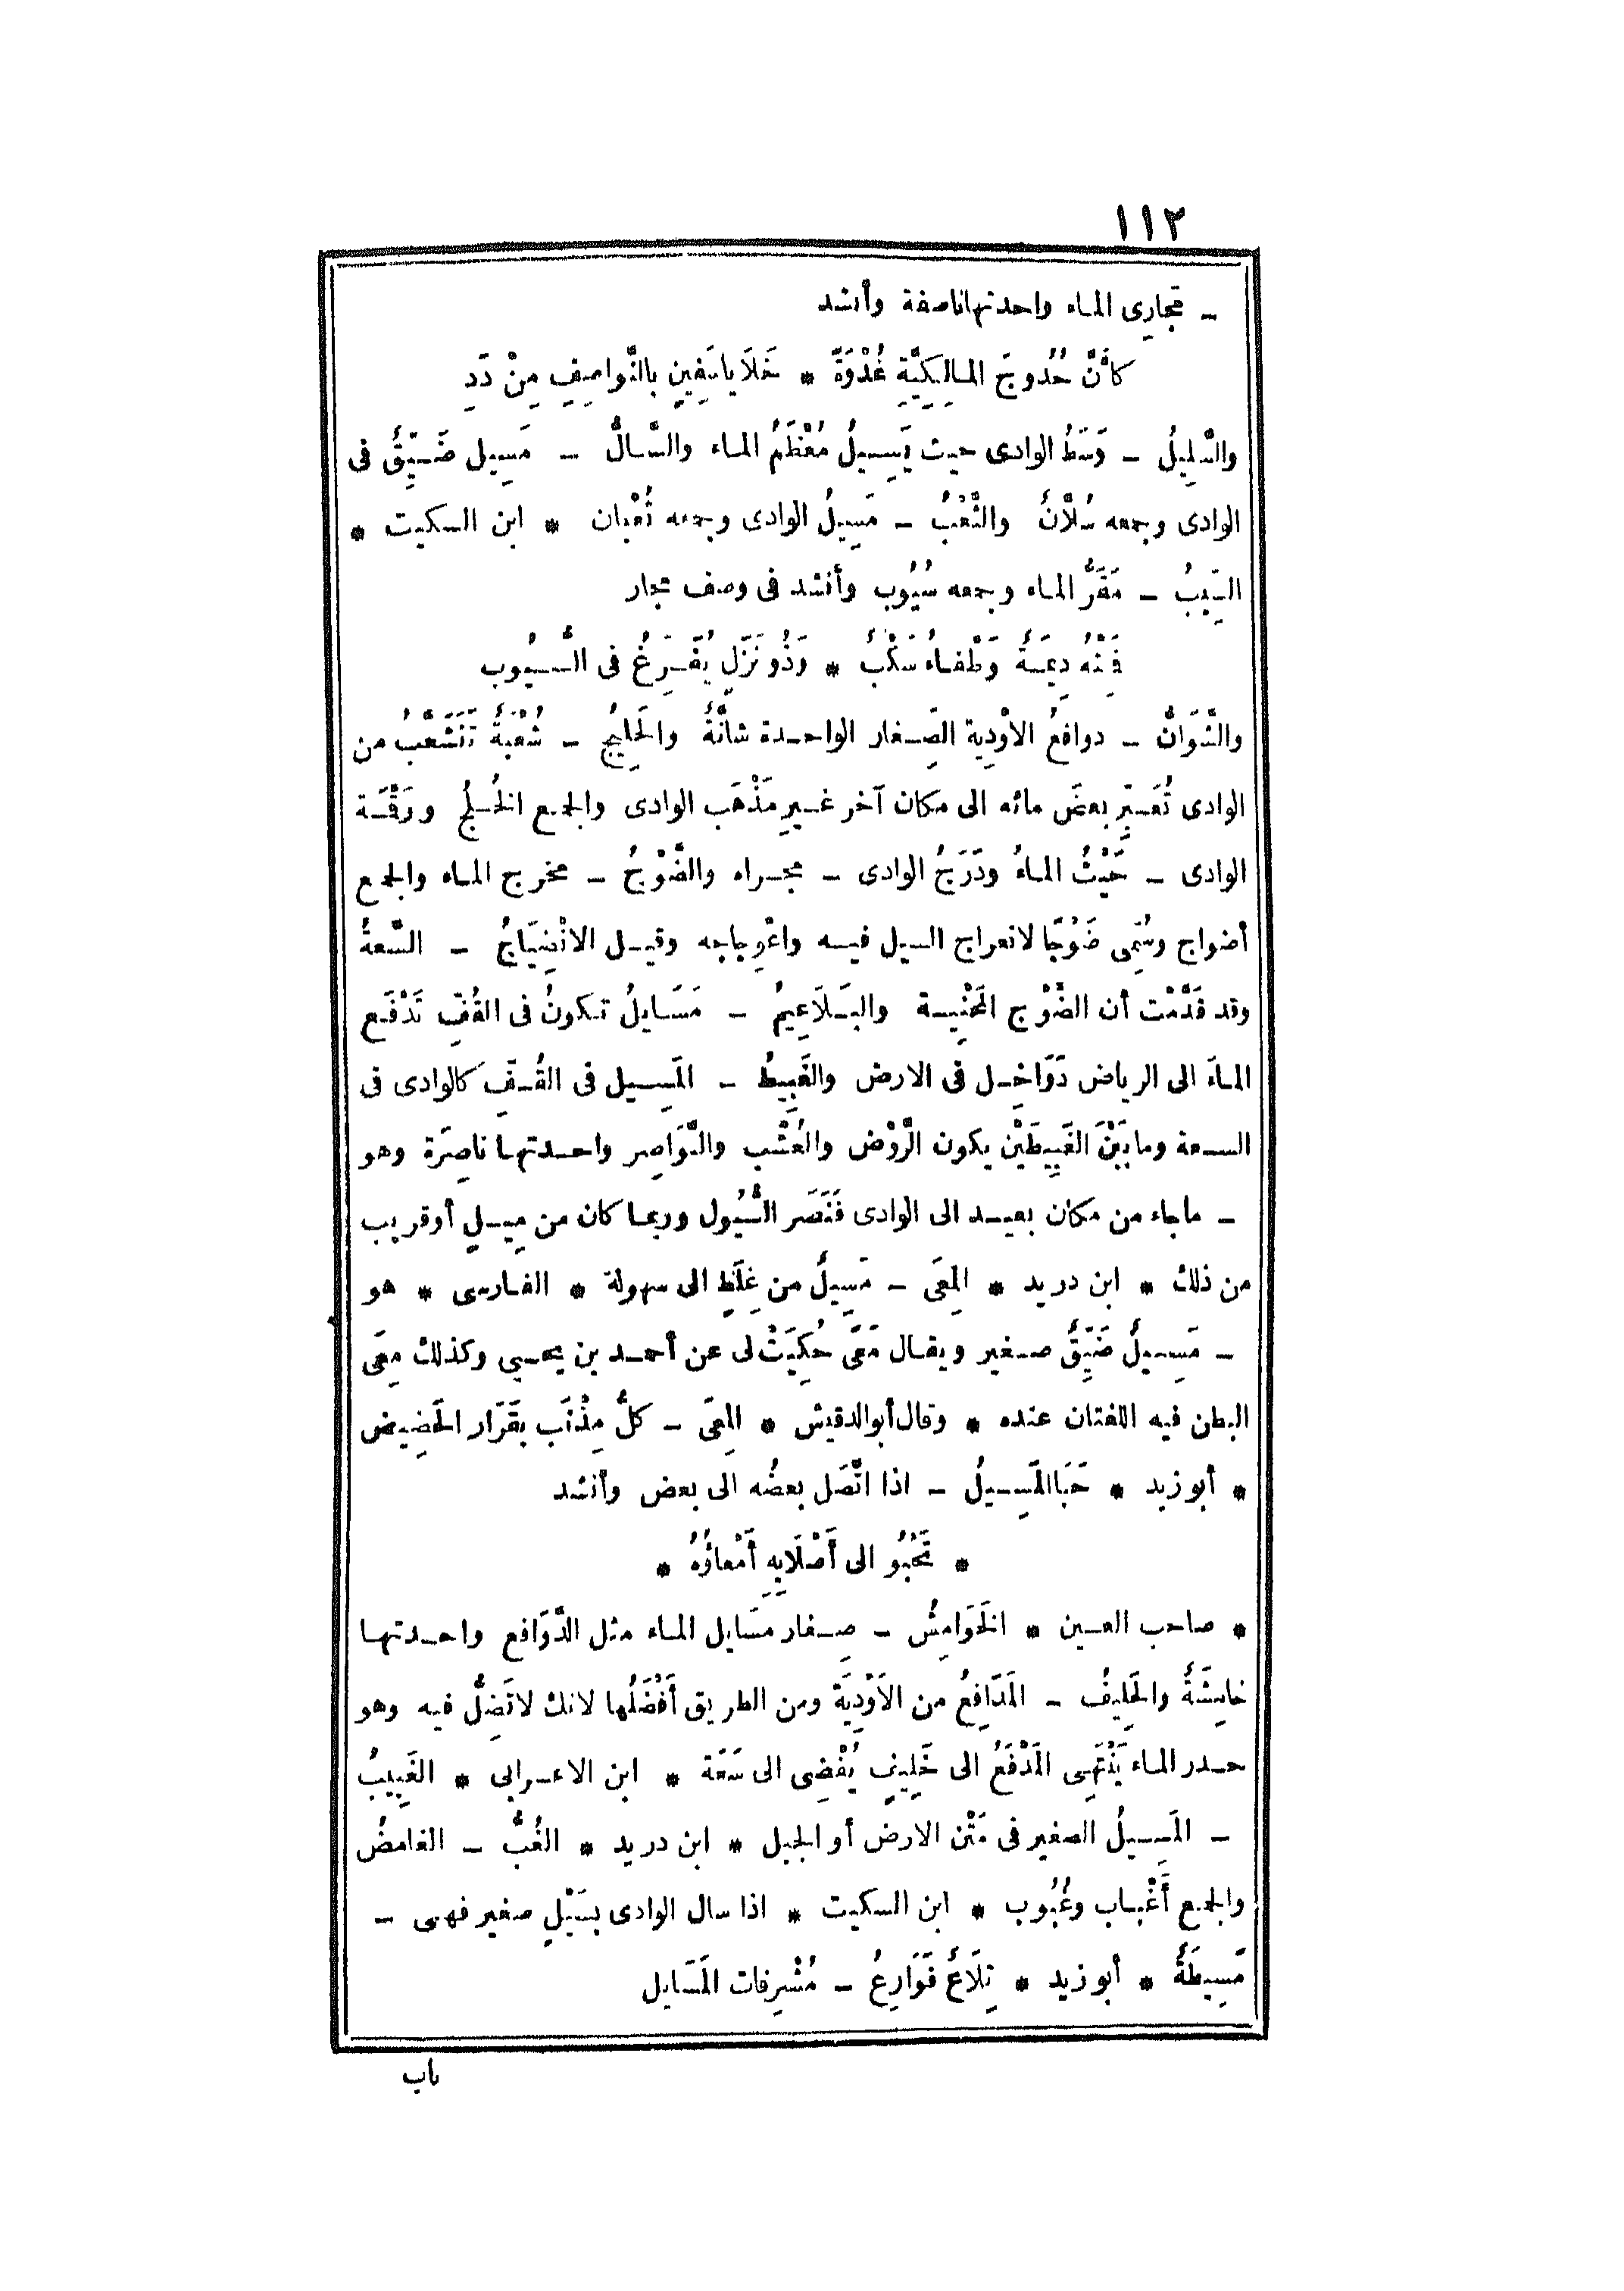 ١١٢
ـ مَجارِى الماء واحدتها ناصفة وأنشد
كأَنَّ حُدُوجَ المالِكِيَّةِ غُدْوَةً * خَلَايا سَفِينٍ بالنَّواصِفِ مِنْ دَدِ
والسَّلِيلُ ـ وَسَطُ الوادى حيث يَسِيلُ مُعْظَمُ الماء والسَّالُّ ـ مَسِيل ضَيِّقٌ فى
الوادى وجمعه سُلَّانٌ والثَّعْبُ ـ مَسِيلُ الوادى وجمعه ثُعْبان * ابن السكيت *
السِّيبُ ـ مَقَرُّ الماء وجمعه سُيُوب وأنشد فى وصف مجار
فَمِنْهُ دِيمَةٌ وَطْفاءُ سَكْبٌ * وَذُو نَزَلٍ يُفَرِّغُ فى السُّيُوب
والشَّوَانُّ ـ دوافعُ الاوْدِية الصِّغار الواحدة شانَّةٌ والخَلِيجُ ـ شُعْبَةٌ تَتَشَعَّبُ من
الوادى تُعَبِّر بعضَ مائه الى مكان آخر غيرِ مَذْهَب الوادى والجمع الخُلُج ورَقْمَة
الوادى ـ حَيْثُ الماءُ ودَرَجُ الوادى ـ مجراه والضَّوْجُ ـ مخرج الماء والجمع
أضواج وسُمِّى ضَوْجًا لانعراج السيل فيه واعْوِجاجه وقيل الانْضِيَاجُ ـ السَّعةُ
وقد قَدَّمْت أن الضَّوْج المَحْنِيَة والبَلَاعِيمُ ـ مَسَايلُ تكونُ فى القُفِّ تَدْفَع
الماءَ الى الرياض دَوَاخِل فى الارض والغَبِيطُ ـ المَسِيل فى القُفِّ كالوادى فى
السعة وما بَيْنَ الغَبِيطَيْن يكون الرَّوْض والعُشْب والنَّوَاصِر واحدتها ناصِرَة وهو
ـ ماجاء من مكان بعيد الى الوادى فَنَصَر السُّيُول وربما كان من مِيلٍ أوقريب
من ذلك * ابن دريد * المِعَى ـ مَسِيلٌ من غِلَظٍ الى سهولة * الفارسى * هو
ـ مَسِيلٌ ضَيِّقٌ صغير ويقال مَعًى حُكِيَتْ لى عن أحمد بن يحيى وكذلك مِعَى
البطن فيه اللغتان عنده * وقال أبوالدقيش * المِعَى ـ كلُّ مِذْنَب بقَرَار الحَضِيض
* أبوزيد * حَبَا المَسِيلُ ـ اذا اتَّصَل بعضُه الى بعض وأنشد
* تَحْبُو الى أَصْلَابِهِ أَمْعاؤُهُ *
* صاحب العين * الخَوَامِشُ ـ صِغار مسَايل الماء مثل الدَّوَافع واحدتها
خامِشَةٌ والخَلِيفُ ـ المَدَافِعُ من الاَوْدِيَة ومن الطريق أَفْضَلُها لانك لاتَضِلُّ فيه وهو
حدر الماء يَنْتَهِى المَدْفَعُ الى خَلِيفٍ يُفْضِى الى سَعَة * ابن الاعرابى * الغَبِيبُ
ـ المَسِيلُ الصغير فى مَتْن الارض أوالجبل * ابن دريد * الغُبُّ ـ الغامضُ
والجمع أَغْباب وغُبُوب * ابن السكيت * اذا سال الوادى بسَيْلٍ صغير فهى ـ
مَسِيطَةٌ * أبوزيد * تِلَاعٌ قَوَارِعُ ـ مُشْرِفات المَسَايل
باب